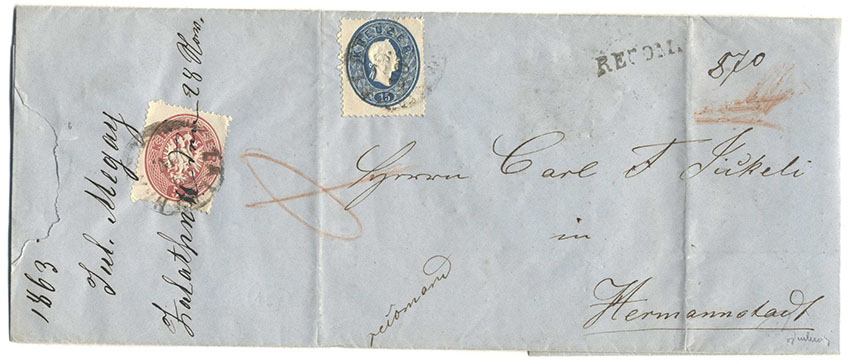 1863
Jul. Megay
Zalathna 28 Nov.
KREUZER
15
RECOM.
870
Herrn Carl F Jickeli
in
Hermannstadt
recomand